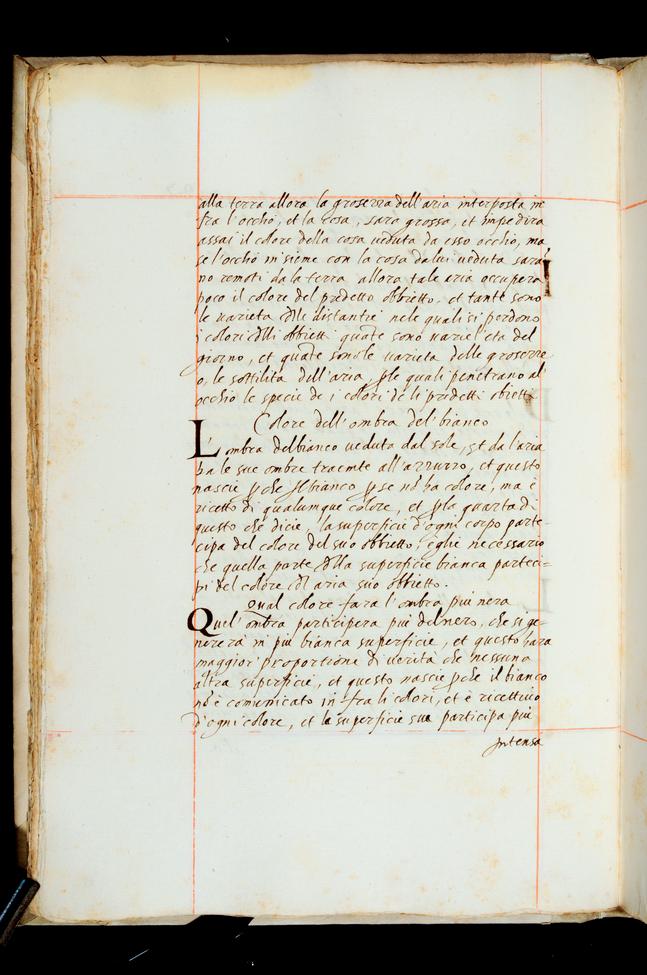 alla terra allora la grosezza dell'aria interposta in
fra l'occhio, et la cosa, sara grossa, et impedira
assai il colore della cosa ueduta da esso occhio, ma
se l'occhio insieme con la cosa da lui ueduta sara
no remoti da la terra allora tale aria occupera
poco il colore del predetto obbietto, et tante sono
le uarieta dlle distantie nele quali si perdono
i colori dlli obbietti quate sono uarie l'eta del
giorno, et quate sono le uarieta delle grosezze
o, le sottilita dell'aria ple quali penetrano al
occhio le specie de i colori de li predetti obietti
Colore dell'ombra del bianco
L'ombra del bianco ueduta dal sole, et da l'aria
ha le sue ombre traente all'azzurro, et questo
nascie pche il bianco p se nō ha colore, ma è
ricetto di qualumque colore, et pla quarta di
questo che dicie, la superficie d'ogni corpo parte-
cipa del colore del suo obbietto, egli è necessario
che quella parte dlla superficie bianca parteci=
pi del colore dl aria suo obbietto.
Qual colore fara l'ombra piu nera
Quel'ombra participera piu del nero, che si ge-
nerera in piu bianca superficie, et questo hara
maggior proportione di uerita che nessuna
altra superficie, et questo nascie pche il bianco
nō è comunicato in fra li colori, et è ricettiuo
d'ogni colore, et la superficie sua participa piu
intensa